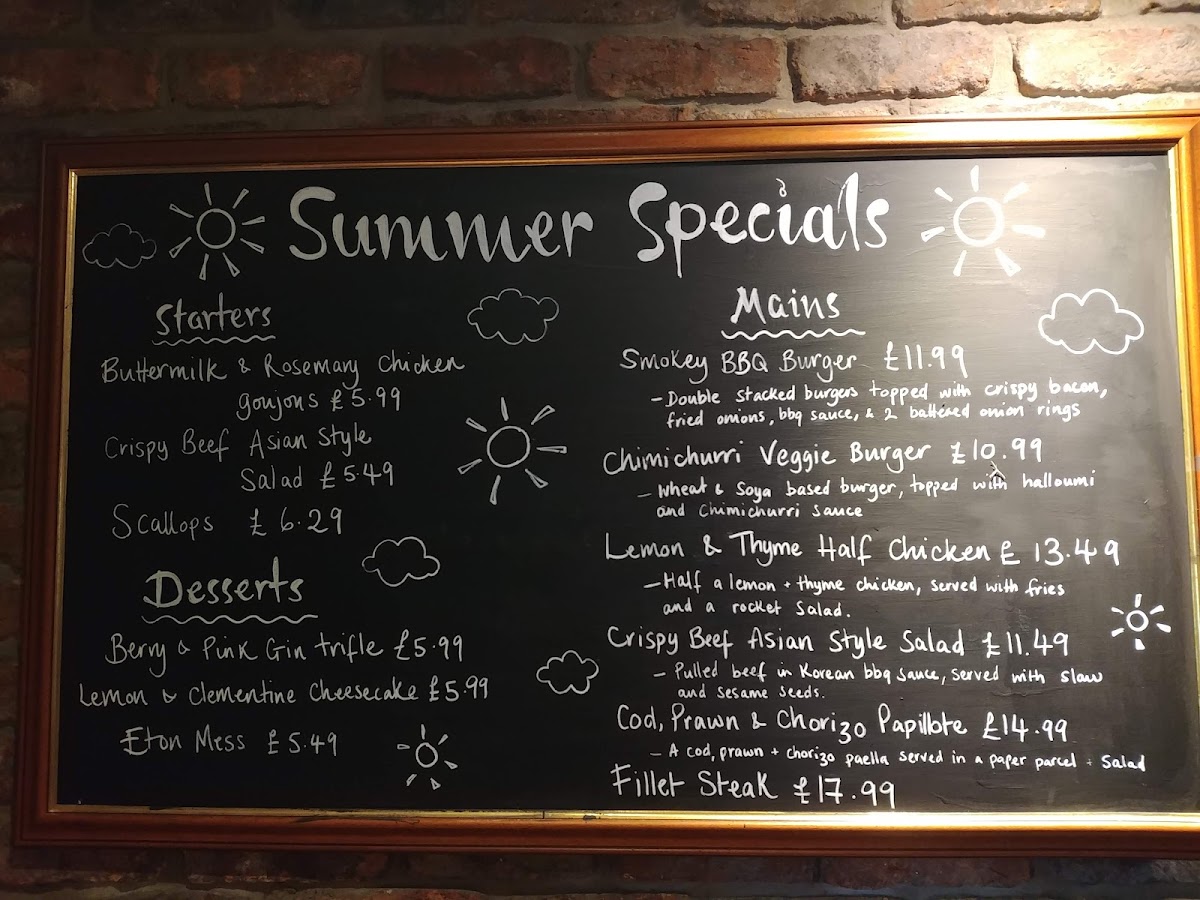 Summer Specials
Starters
Buttermilk & Rosemary Chicken
goujons £5.99
Crispy Beef Asian Style
Salad £5.49
Scallops £6.29
Desserts
Berry & Pink Gin trifle £5.99
Lemon & Clementine Cheesecake £5.99
Eton Mess £5.49
Mains
Smokey BBQ Burger £11.99
- Double stacked burgers topped with crispy bacon,
fried onions, bbq sauce, & 2 battered onion rings
Chimichurri Veggie Burger £10.99
- Wheat & Soya based burger, topped with halloumi
and Chimichurri sauce
Lemon & Thyme Half Chicken £13.49
- Half a lemon + thyme chicken, served with fries
and a rocket salad.
Crispy Beef Asian Style Salad £11.49
- Pulled beef in Korean bbq sauce, served with slaw
and sesame seeds.
Cod, Prawn & Chorizo Papillote £14.99
- A cod, prawn + chorizo paella served in a paper parcel + salad
Fillet Steak £17.99